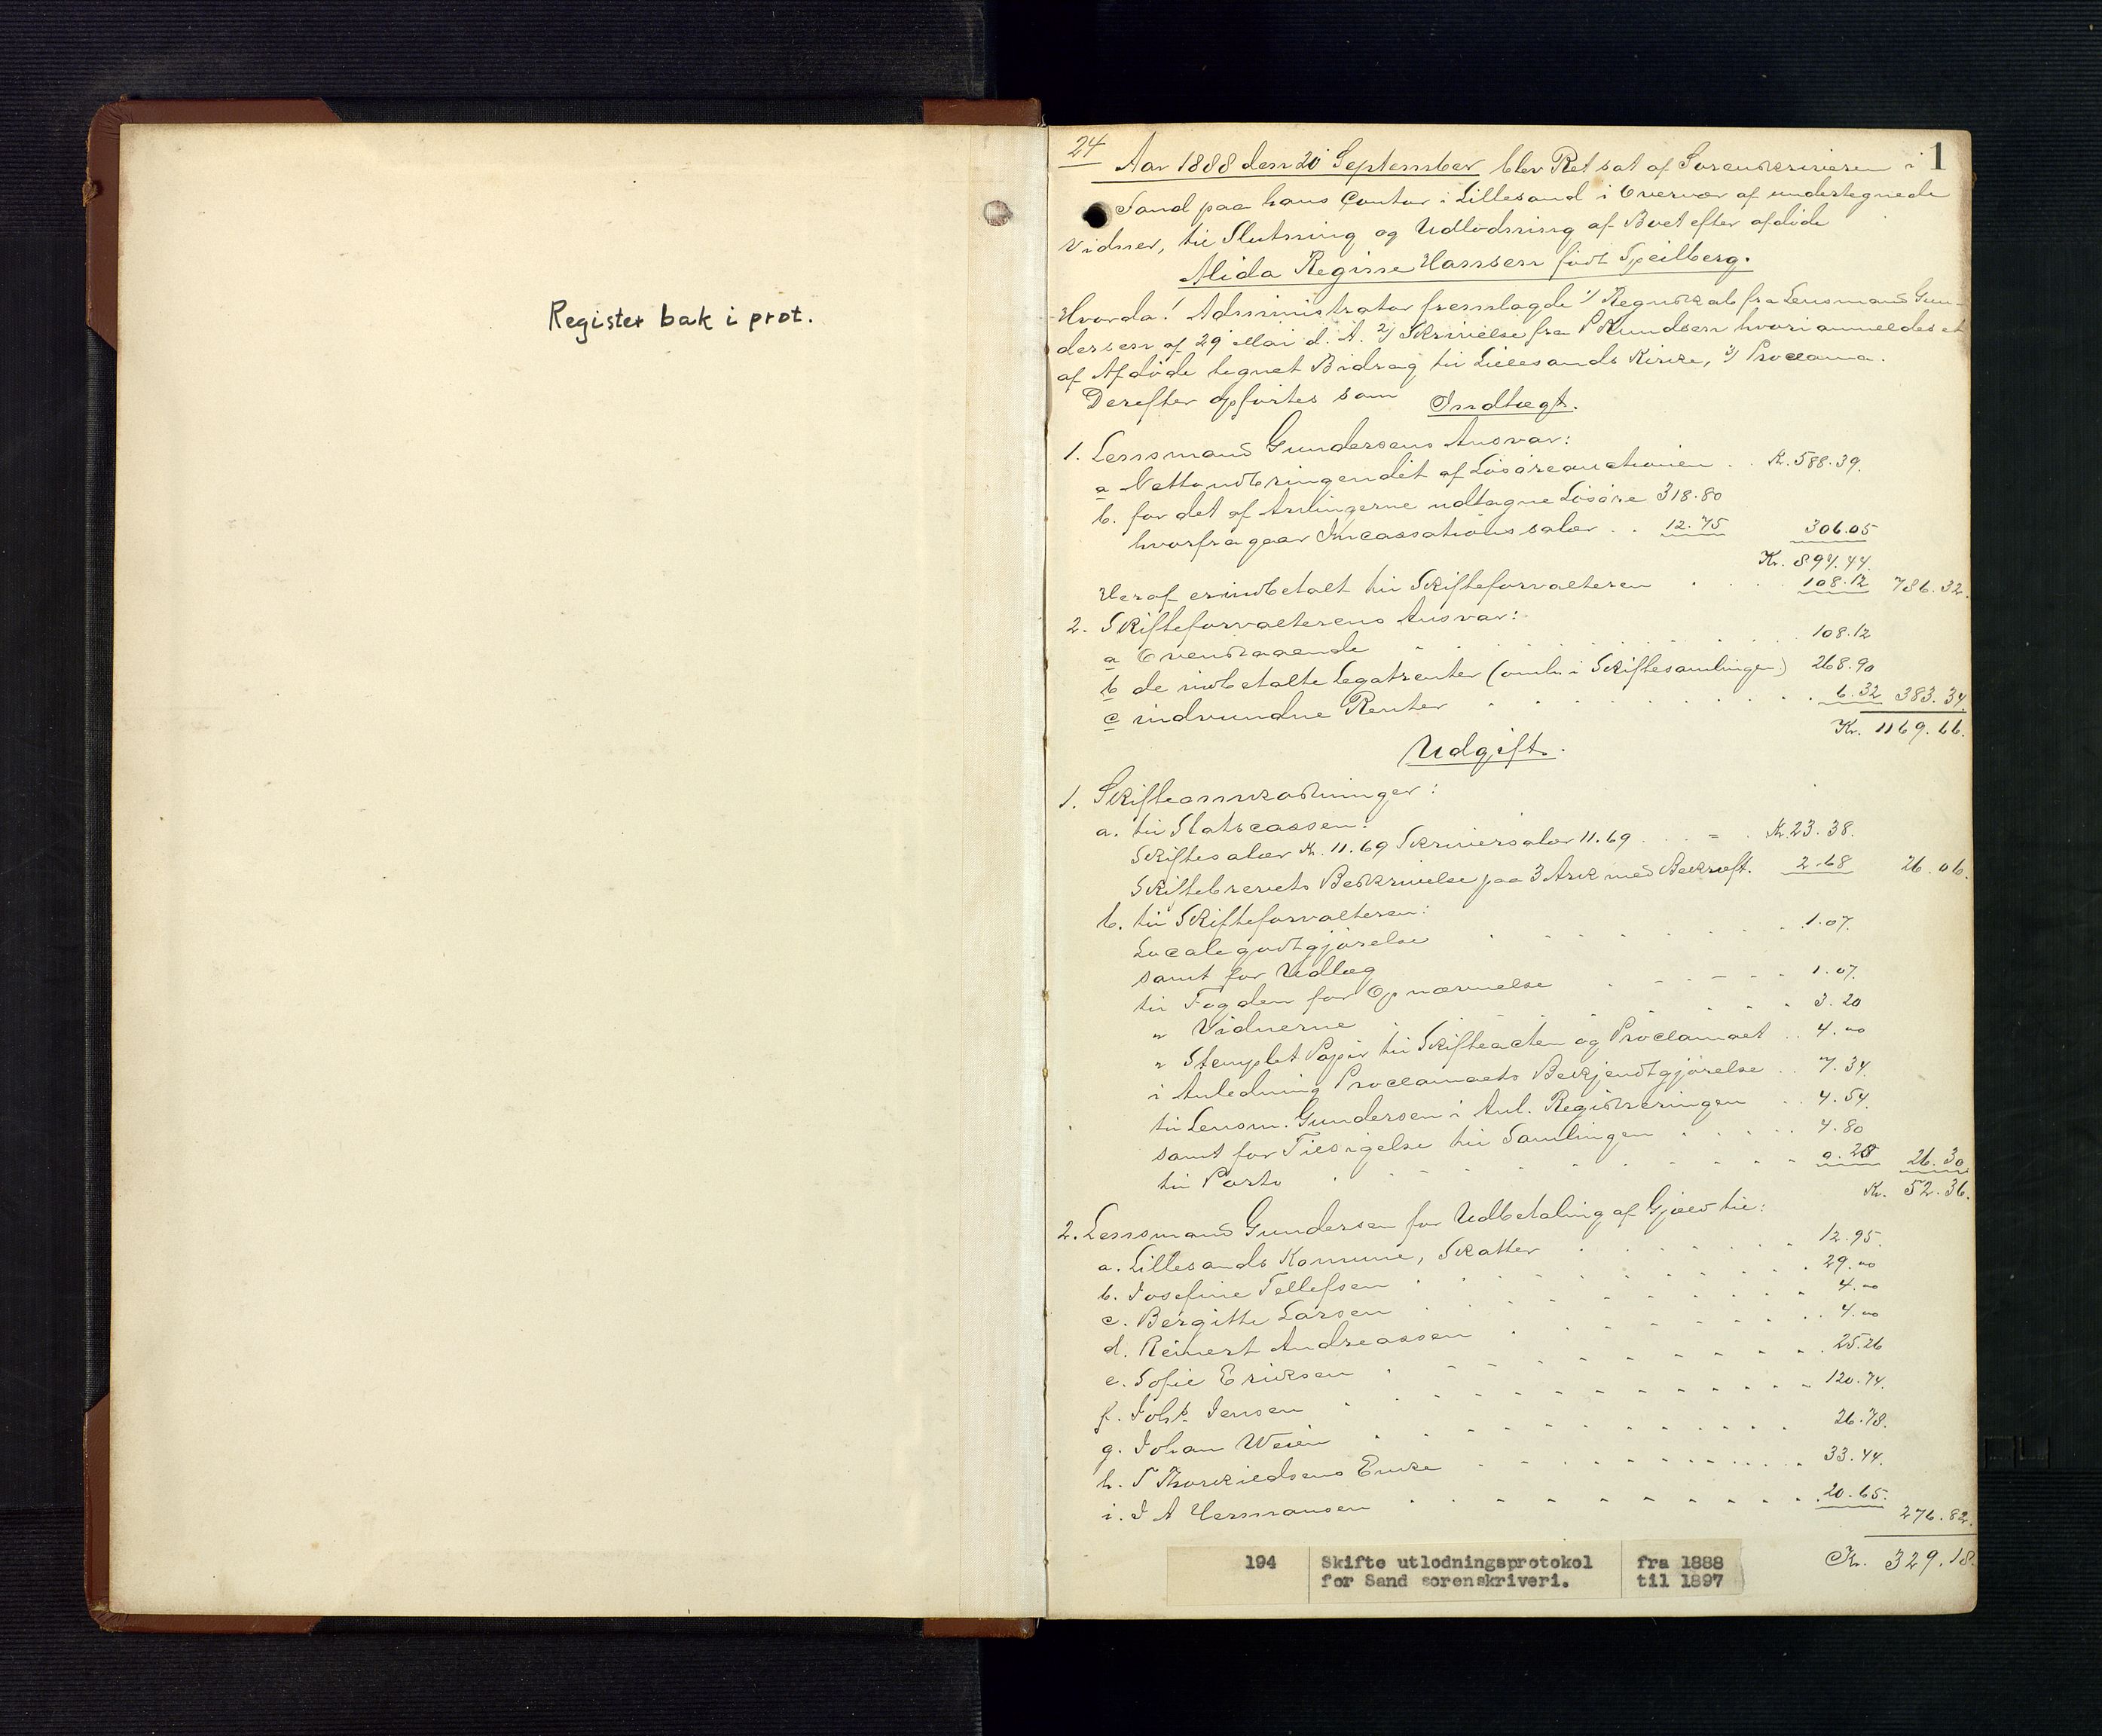 Register bak i prot.
24
1
Aar 1888 den 20 September blev Ret sat af Sorenskriveren i
Sand paa hans Contor i Lillesand i Overvær af undertegnede
Vidner, til Slutning og Udlodning af Boet efter afdøde
Alida Regine Hansen født Speilberg.
Hvorda! Administrator fremlagde 1) Regnskab fra Lensmand Gun-
dersen af 29 Mai d. A. 2) Skrivelse fra Knudsen hvori anmeldes et
af Afdøde tegnet Bidrag til Lillesands Kirke, 3) Proclama.
Derefter opførtes som Indtægt.
1. Lensmand Gundersens Ansvar:
a Nettoudbringendet af Løsøreauctionen . . Kr. 588.39.
b. for det af Arvingerne udtagne Løsøre 318.80
hvorfra gaar Incassationssalær . . 12.75 306.05
Kr. 894.44.
Heraf er indbetalt til Skifteforvalteren . . . 108.12 786.32.
2. Skifteforvalterens Ansvar:
a Ovenstaaende 108.12
b de indbetalte Legatrenter (omh. i Skiftesamlingen) 268.90
c indvundne Renter 6.32 383.34.
Kr. 1169.66.
Udgift.
1. Skifteomkostninger:
a. til Statscassen:
Skiftesalær Kr. 11.69 Skriversalær 11.69 . . = . Kr. 23.38.
Skiftebrevets Beskrivelse paa 3 Ark med Bekræft. 2.68 26.06.
b. til Skifteforvalteren:
Localegodtgjørelse 1.07.
samt for Udlæg
til Fogden for Opnævnelse 1.07.
" Vidnerne 3.20
" Stemplet Papir til Skifteacten og Proclamaet . . 4.00
i Anledning Proclamaets Bekjendtgjørelse . . 7.34.
til Lensm. Gundersen i Anl. Registreringen . . 4.54.
samt for Tilsigelse til Samlingen 4.80
til Porto 0.28 26.30
Kr. 52.36.
2. Lensmand Gundersen for Udbetaling af Gjæld til:
a. Lillesands Komune, Skatter 12.95.
b. Josefine Tellefsen 29.00
c. Bergitte Larsen 4.00
d. Reinert Andreassen 4.00
e. Sofie Eriksen 25.26
f. Johs. Jensen 120.74.
g. Johan Weien 26.78.
h. T Thorkildsens Enke 33.44.
i. J A Hermansen 20.65.
276.82.
Kr. 329.18.
194 Skifte utlodningsprotokol fra 1888
for Sand sorenskriveri. til 1897